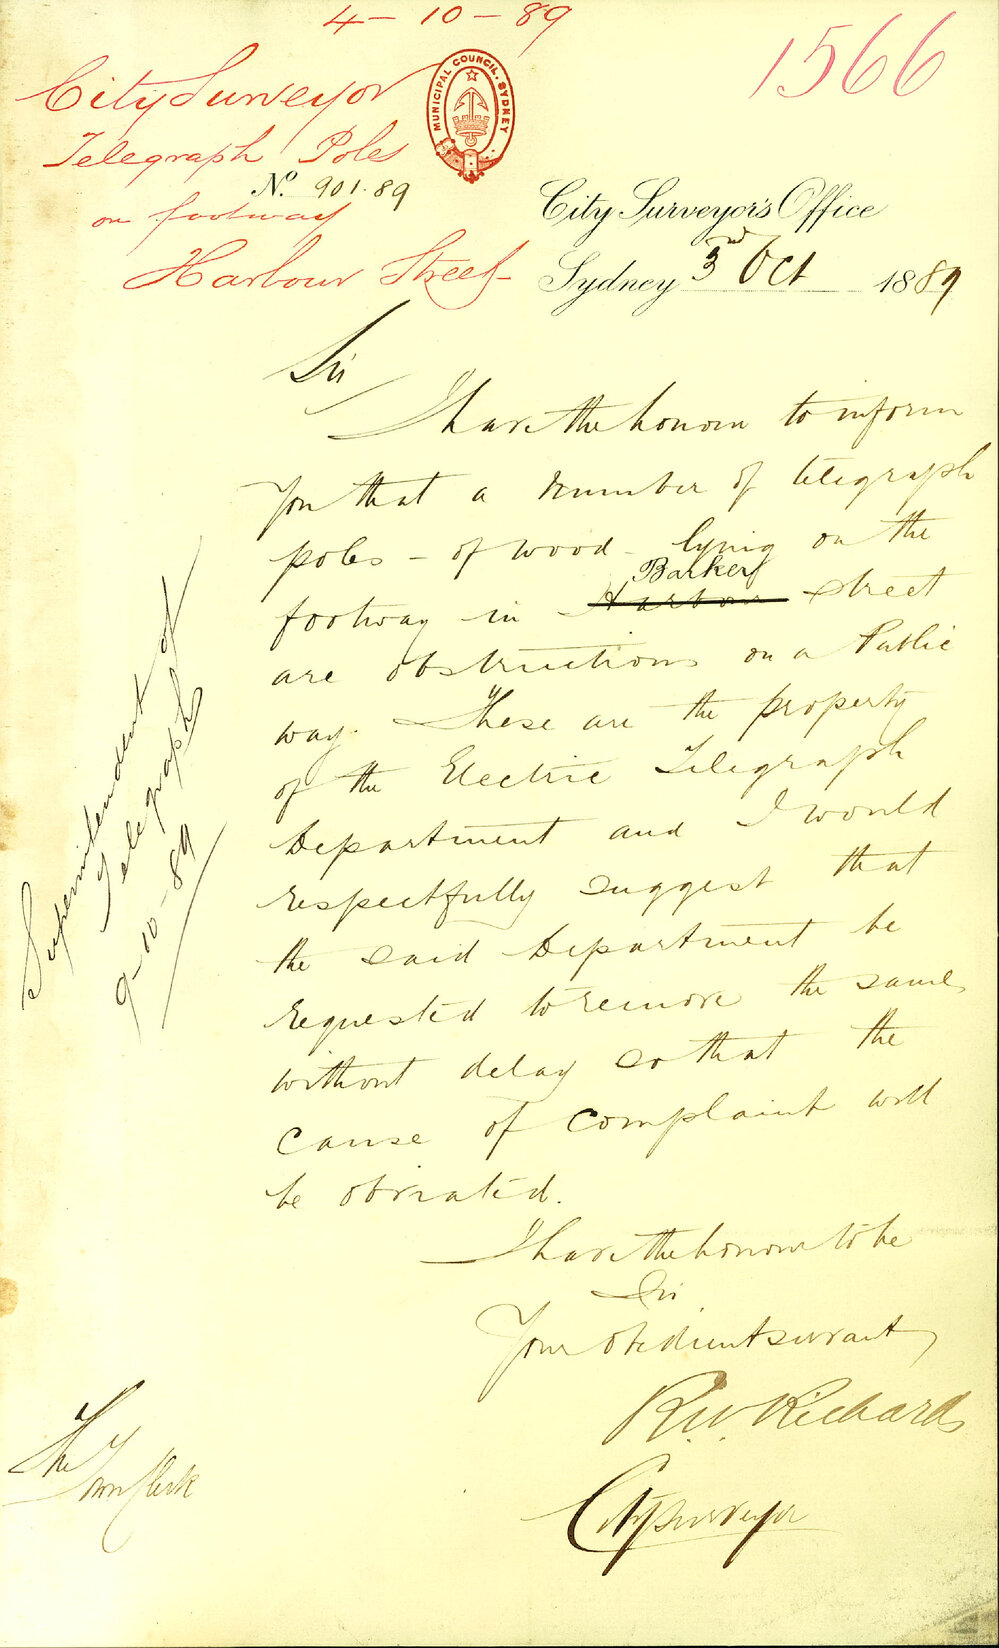 4-10-89
1566
City Surveyor
Telegraph Poles
No. 901.89
on footway
Harbour Street
MUNICIPAL COUNCIL, SYDNEY
City Surveyor's Office
Sydney 3rd Oct 1889
Sir
I have the honour to inform
you that a number of telegraph
poles - of wood - lying on the
Barker
footway in Harbour street
are obstructions on a Public
way. These are the property
of the Electric Telegraph
Department and I would
respectfully suggest that
the said Department be
requested to remove the same
without delay so that the
cause of complaint will
be obviated.
I have the honour to be
Sir
Your obedient servant
R.W. Richards
City Surveyor
The
Town Clerk
Superintendent of
Telegraphs
9-10-89